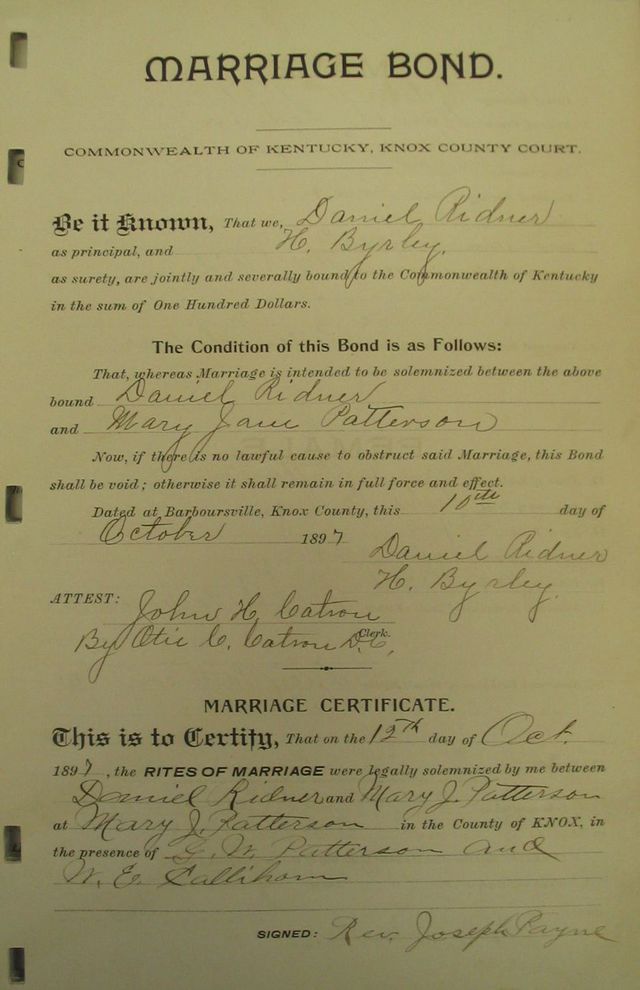 MARRIAGE BOND.
COMMONWEALTH OF KENTUCKY, KNOX COUNTY COURT.
Be it Known, That we, Daniel Ridner
as principal, and H. Byrley.
as surety, are jointly and severally bound to the Commonwealth of Kentucky
in the sum of One Hundred Dollars.
The Condition of this Bond is as Follows:
That, whereas Marriage is intended to be solemnized between the above
bound Daniel Ridner
and Mary Jane Patterson
Now, if there is no lawful cause to obstruct said Marriage, this Bond
shall be void; otherwise it shall remain in full force and effect.
Dated at Barboursville, Knox County, this 10th day of
October 1897
Daniel Ridner
H. Byrley.
ATTEST: John H. Catron
By Otis C. Catron D.C. Clerk.
MARRIAGE CERTIFICATE.
This is to Certify, That on the 12th day of Oct.
1897, the RITES OF MARRIAGE were legally solemnized by me between
Daniel Ridner and Mary J. Patterson
at Mary J. Patterson in the County of KNOX, in
the presence of G. W. Patterson and
W. E.
SIGNED: Rev. Joseph Payne